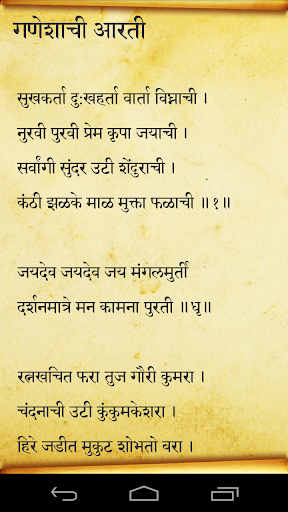 गणेशाची आरती
सुखकर्ता दुःखहर्ता वार्ता विघ्नाची ।
नुरवी पुरवी प्रेम कृपा जयाची ।
सर्वांगी सुंदर उटी शेंदुराची ।
कंठी झळके माळ मुक्ता फळाची ॥१॥
जयदेव जयदेव जय मंगलमुर्ती
दर्शनमात्रे मन कामना पुरती ॥धृ॥
रत्नखचित फरा तुज गौरी कुमरा ।
चंदनाची उटी कुंकुमकेशरा ।
हिरे जडीत मुकुट शोभतो बरा ।